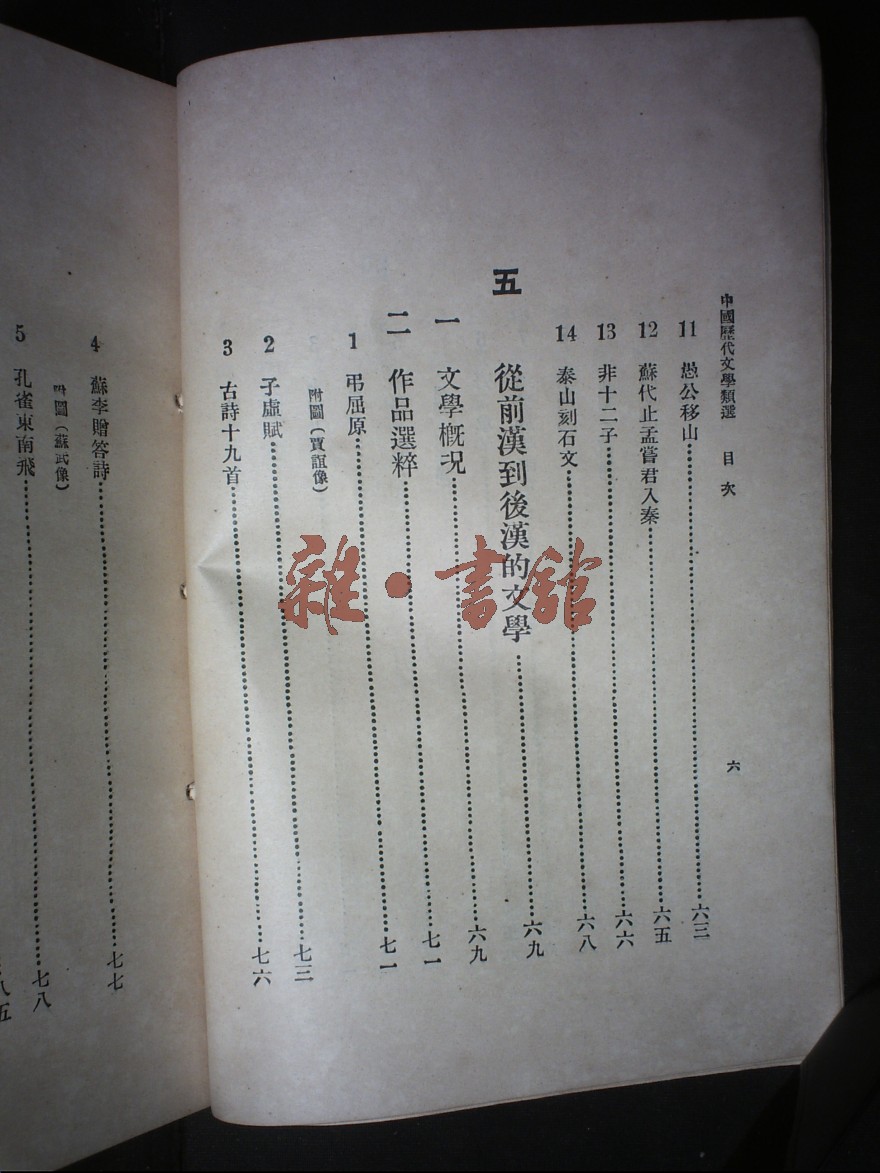 中國歷代文學類選 目次 六
11 愚公移山 六三
12 蘇代止孟嘗君入秦 六五
13 非十二子 六六
14 泰山刻石文 六八
五 從前漢到後漢的文學 六九
一 文學概況 六九
二 作品選粹 七一
1 弔屈原 七一
附圖(賈誼像)
2 子虛賦 七三
3 古詩十九首 七六
4 蘇李贈答詩 七七
附圖(蘇武像)
5 孔雀東南飛 七八
八五
雜·書館